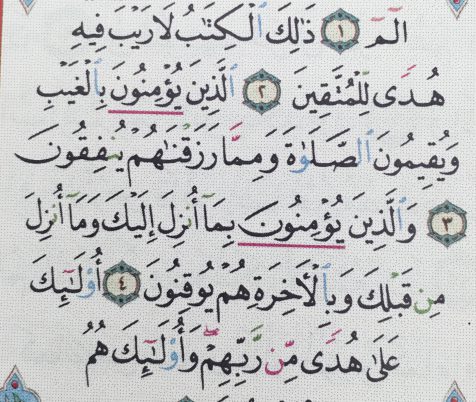 الٓمٓ ١ ذَٰلِكَ ٱلْكِتَٰبُ لَا رَيْبَ فِيهِ
هُدًى لِّلْمُتَّقِينَ ٢ ٱلَّذِينَ يُؤْمِنُونَ بِٱلْغَيْبِ
وَيُقِيمُونَ ٱلصَّلَوٰةَ وَمِمَّا رَزَقْنَٰهُمْ يُنفِقُونَ
٣ وَٱلَّذِينَ يُؤْمِنُونَ بِمَآ أُنزِلَ إِلَيْكَ وَمَآ أُنزِلَ
مِن قَبْلِكَ وَبِٱلْأَخِرَةِ هُمْ يُوقِنُونَ ٤ أُو۟لَٰٓئِكَ
عَلَىٰ هُدًى مِّن رَّبِّهِمْ وَأُو۟لَٰٓئِكَ هُمُ